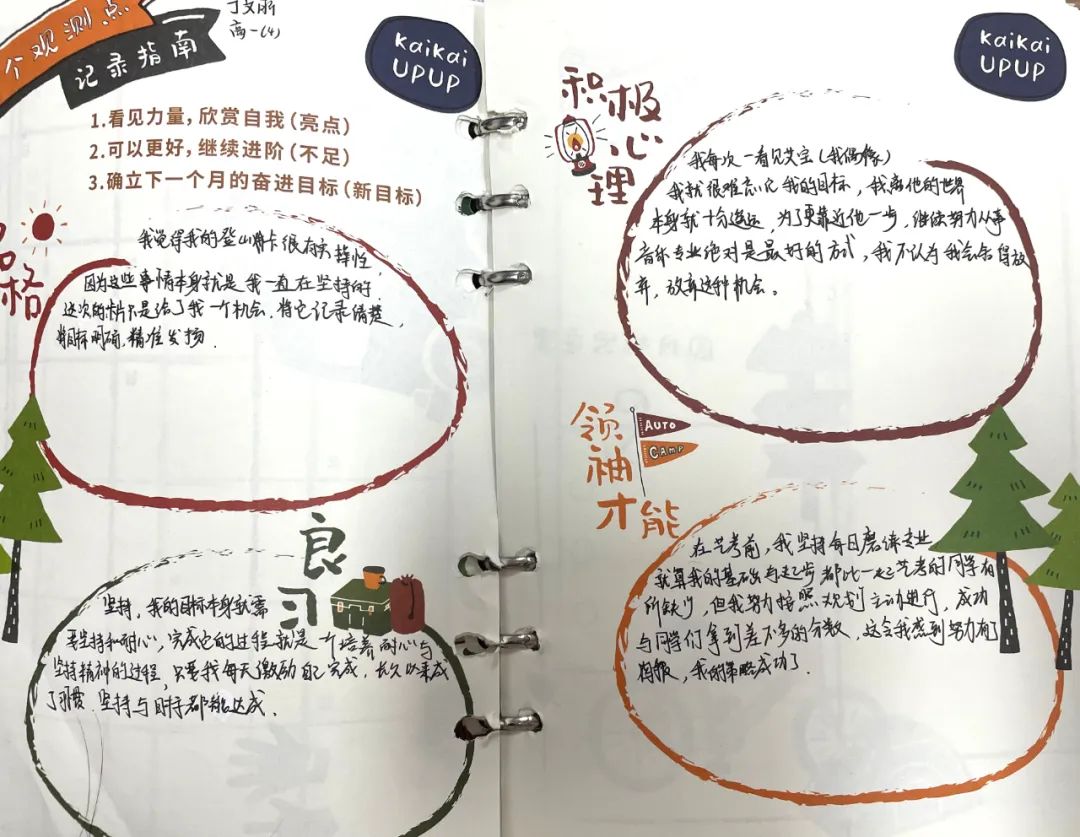 个观测点
记录指南
丁文丽
高一(4)
KaiKai
UPUP
1.看见力量,欣赏自我(亮点)
2.可以更好,继续进阶(不足)
3.确立下一个月的奋进目标(新目标)
格
我觉得我的登山打卡很有实操性,
因为这些事情本身就是我一直在坚持的
这次的卡片是给了我一个机会,将它记录清楚,
将目标明确,精准发扬.
良习
坚持,我的目标本身就需
要坚持和耐心,完成它的过程就是一个培养耐心与
坚持精神的过程,只要我每天激励自己完成,长久以来成
了习惯.坚持与耐子都能达成.
KaiKai
UPUP
积极心理
我每次一看见艾宝(我偶像)
我就很难忘记我的目标,我离他的世界
本身就十分遥远,为了更靠近他一步,继续努力从事
音乐专业绝对是最好的方式,我不认为我会舍得放
弃,放弃这种机会。
领袖才能
AUTO
CAMP
在艺考前,我坚持每日磨练专业
就算我的基础与起步都比一起艺考的同学有
所缺少,但我努力按照规划主动进行,成功
与同学们拿到差不多的分数,这会我感到努力有了
回报,我的策略成功了.